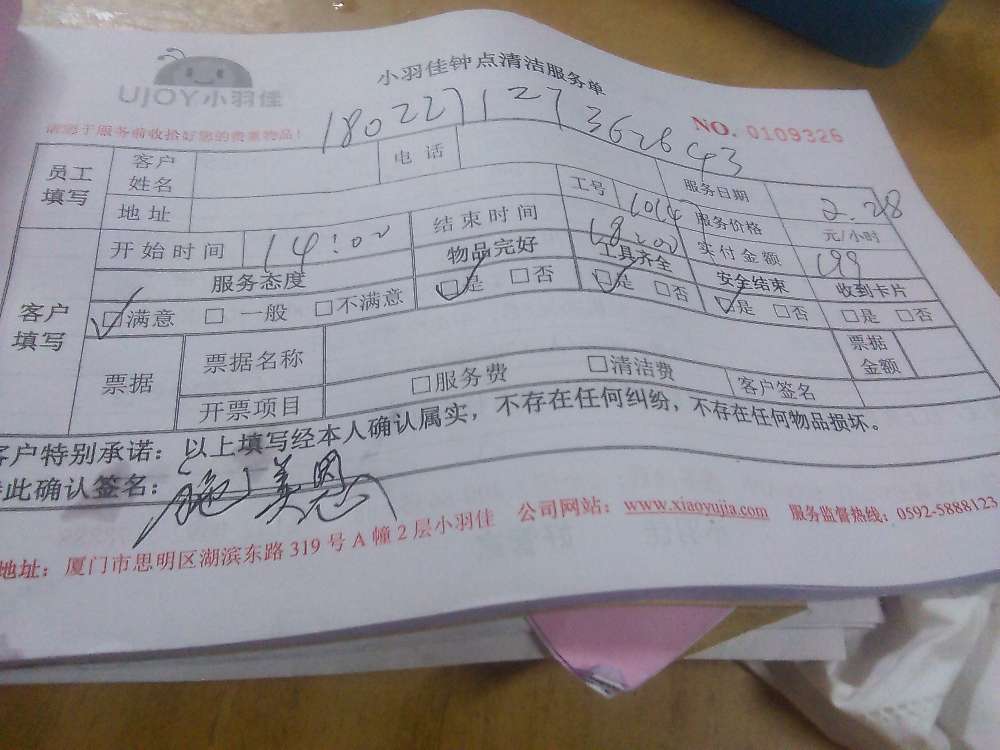 UJOY小羽佳
小羽佳钟点清洁服务单
请您于服务前收拾好您的贵重物品!
NO. 0109326
180227127362643
员工填写
客户姓名
电话
服务日期
2.28
地址
工号
1014
服务价格
元/小时
客户填写
开始时间
14:00
结束时间
18:00
实付金额
199
服务态度
物品完好
工具齐全
安全结束
收到卡片
☑满意 □ 一般 □不满意
☑是 □否
☑是 □否
☑是 □否
□是 □否
票据
票据名称
票据金额
开票项目
□服务费 □清洁费
客户签名
客户特别承诺：以上填写经本人确认属实，不存在任何纠纷，不存在任何物品损坏。
此确认签名：施美恩
地址：厦门市思明区湖滨东路319号A幢2层小羽佳 公司网站：www.xiaoyujia.com 服务监督热线：0592-5888123